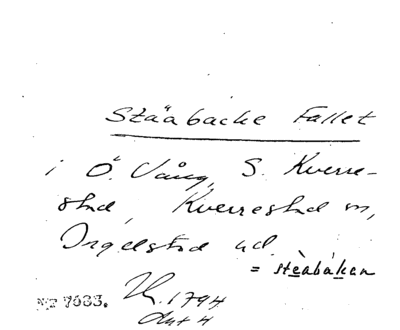 Stäabacke Fallet
i Ö. Vång, S. Kverre-
stad, Kverrestad sn,
Ingelstad hd.
= stèabákan
7633. 1794
Akt 4